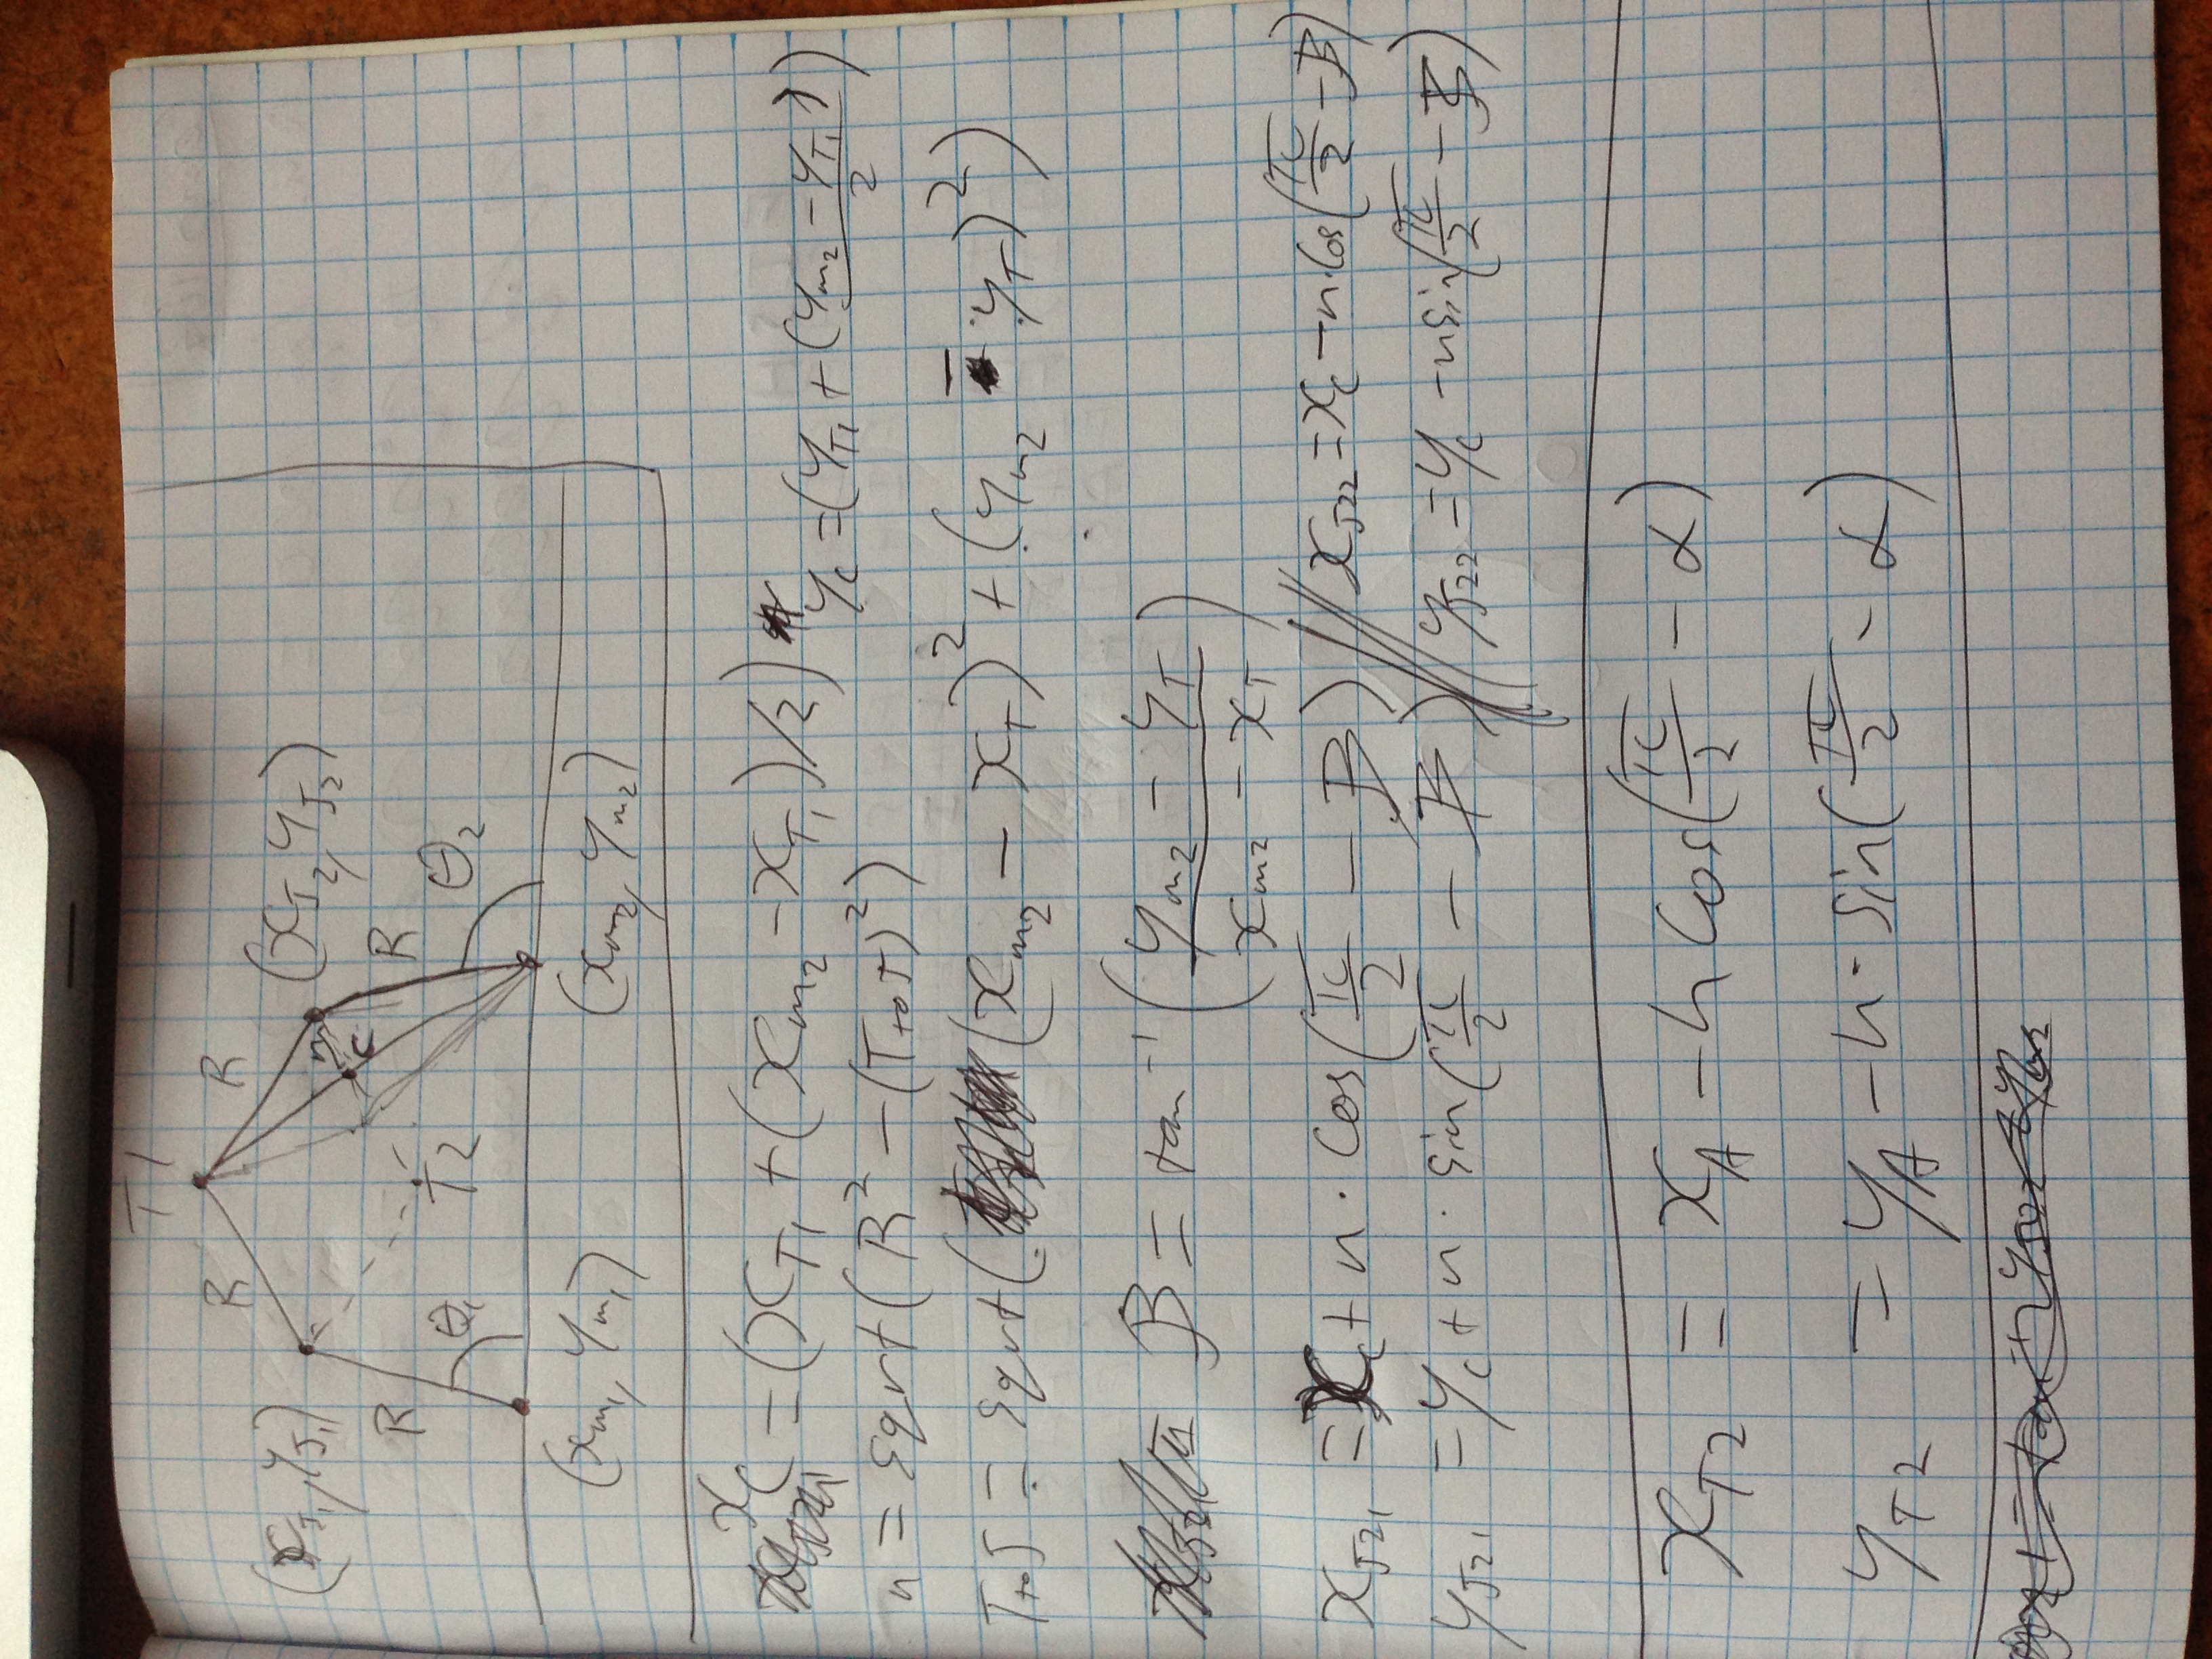 T1
R R
(x_J1, y_J1) (x_J2, y_J2)
n
C
R R
T2
θ_1 θ_2
(x_m1, y_m1) (x_m2, y_m2)
x_C = (x_T1 + (x_m2 - x_T1)/2) y_C = (y_T1 + (y_m2 - y_T1)/2)
n = sqrt(R² - (TtoJ)²)
TtoJ = sqrt((x_m2 - x_T)² + (y_m2 - y_T)²)
B = tan⁻¹((y_m2 - y_T)/(x_m2 - x_T))
x_J21 = x_C + n · cos(π/2 - B) // x_J22 = x_C - n · cos(π/2 - B)
y_J21 = y_C + n · sin(π/2 - B) // y_J22 = y_C - n sin(π/2 - B)
x_T2 = x_A - h cos(π/2 - α)
y_T2 = y_A - h · sin(π/2 - α)